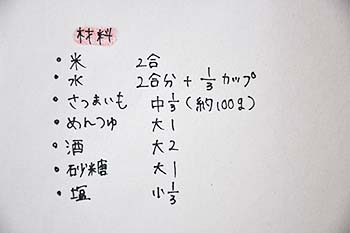 材料
・米 2合
・水 2合分 + 1/3 カップ
・さつまいも 中1/3 (約100g)
・めんつゆ 大1
・酒 大2
・砂糖 大1
・塩 小1/3